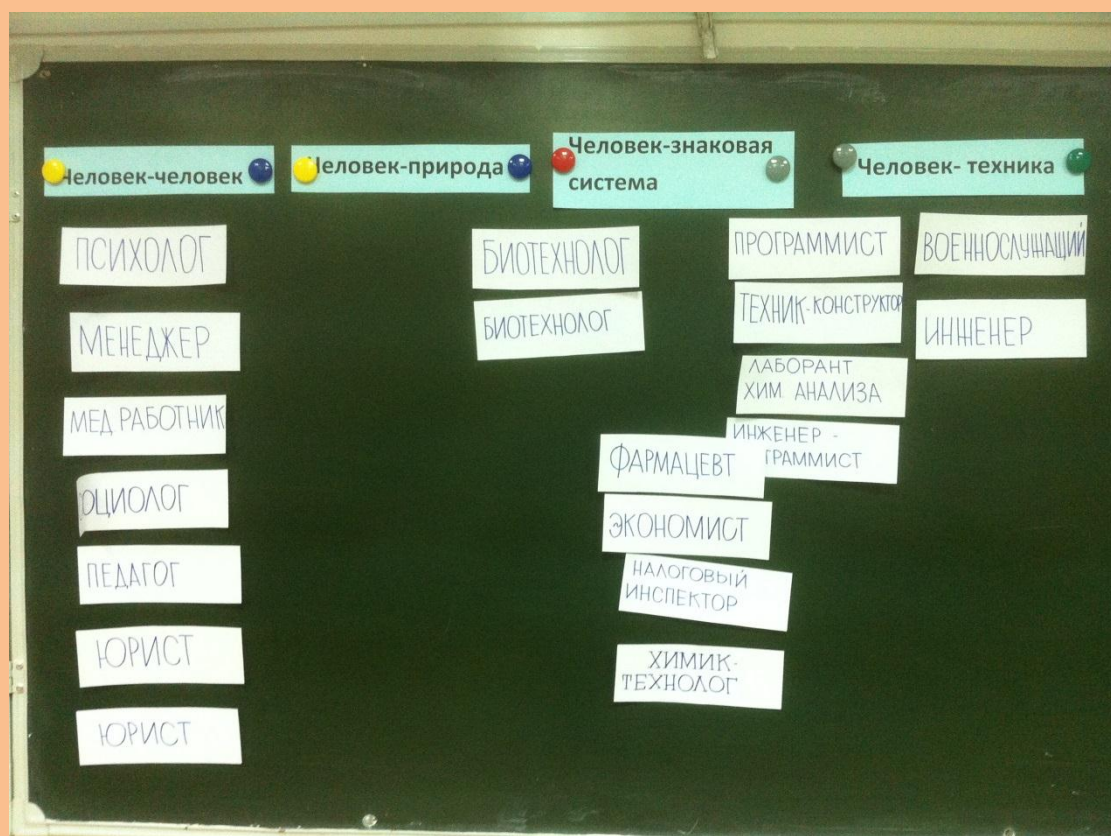 Человек-человек
Человек-природа
Человек-знаковая
система
Человек- техника
ПСИХОЛОГ
МЕНЕДЖЕР
МЕД РАБОТНИК
СОЦИОЛОГ
ПЕДАГОГ
ЮРИСТ
ЮРИСТ
БИОТЕХНОЛОГ
БИОТЕХНОЛОГ
ФАРМАЦЕВТ
ЭКОНОМИСТ
НАЛОГОВЫЙ
ИНСПЕКТОР
ХИМИК-
ТЕХНОЛОГ
ПРОГРАММИСТ
ТЕХНИК-КОНСТРУКТОР
ЛАБОРАНТ
ХИМ. АНАЛИЗА
ИНЖЕНЕР -
ГРАММИСТ
ВОЕННОСЛУЖАЩИЙ
ИНЖЕНЕР